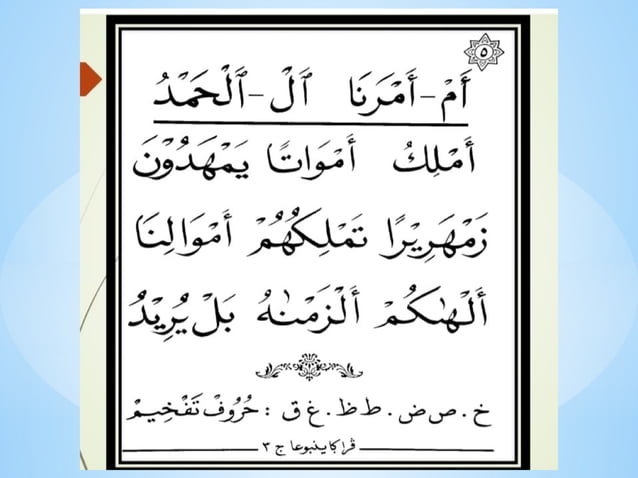 ٥
أَمْ-أَمْرَنَا ٱلْ-ٱلْحَمْدُ
أَمْلِكُ أَمْوَاتًا يَمْهَدُوْنَ
زَمْهَرِيْرًا تَمْلِكُهُمْ أَمْوَالِنَا
أَلْهٰىكُمْ أَلْزَمْنٰهُ بَلْ يُرِيْدُ
خ . ص ض . ط ظ . غ ق : حُرُوْفْ تَفْخِيْمْ
قراكاينبوعا ج ٣